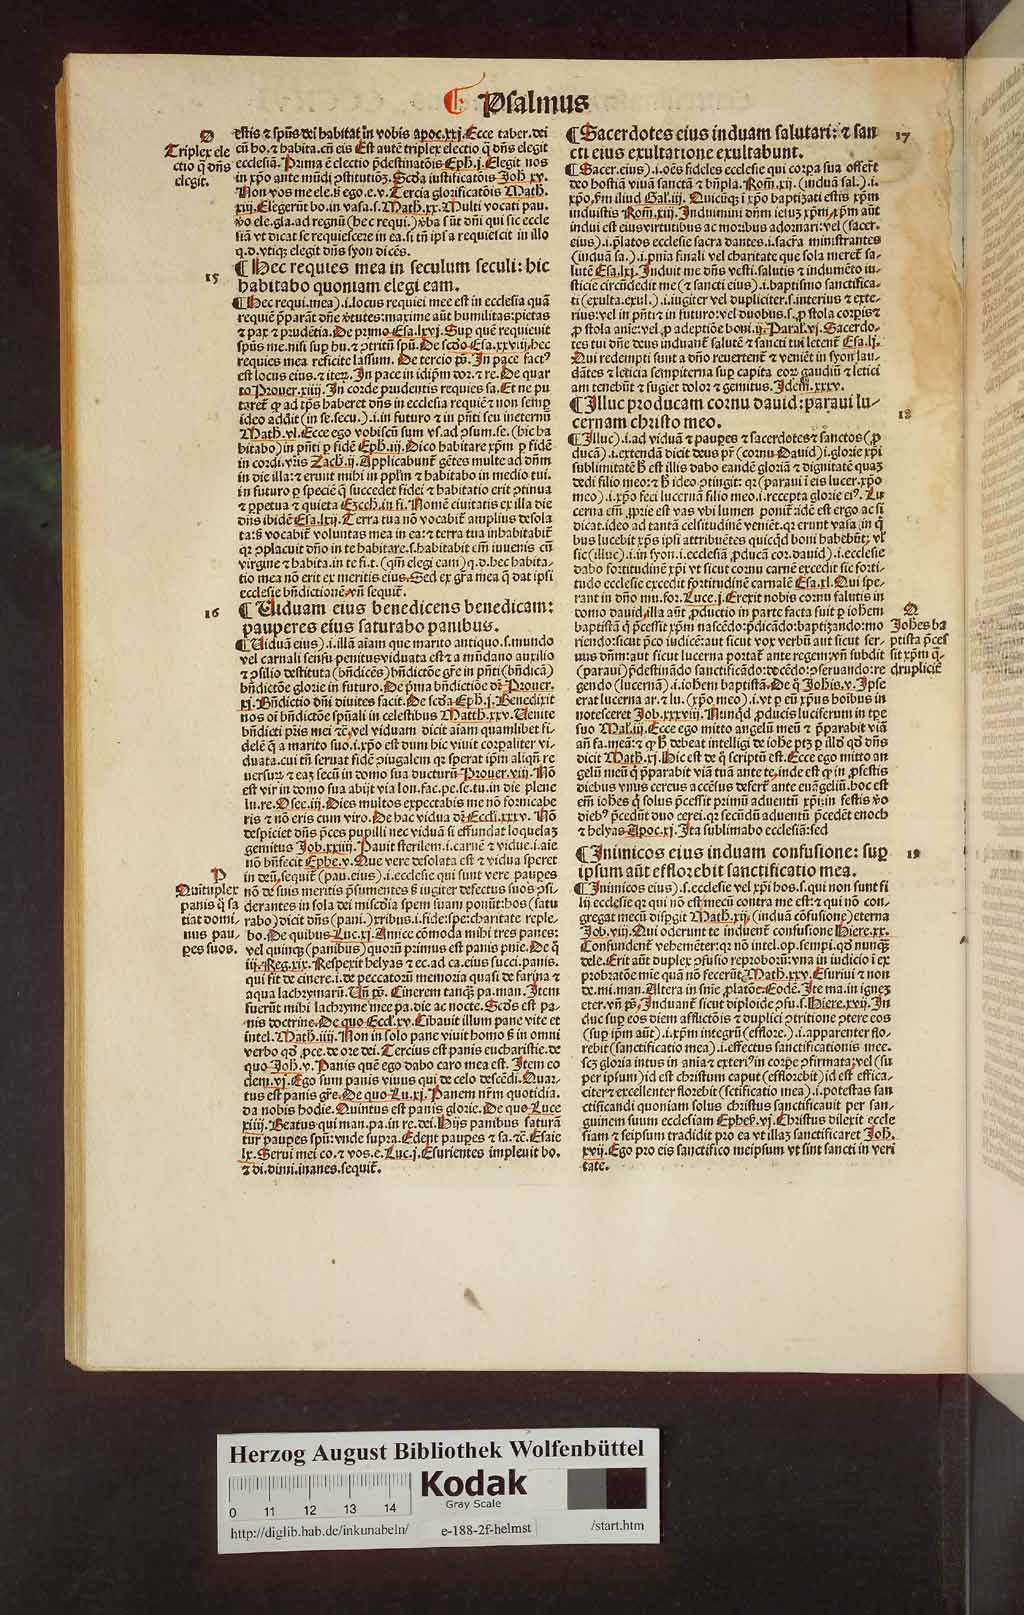 Psalmus
O
Triplex ele
ctio q̄ dn̄s
elegit.
estis ⁊ spūs dei habitat in vobis apoc.xxj. Ecce taber. dei
cū ho. ⁊ habita. cū eis Est autē triplex electio q̄ dn̄s elegit
ecclesiā. Prima ē electio p̄destinatōis Eph.j. Elegit nos
in xp̄o ante mūdi ꝯstitutiōꝫ. Scd̓a iustificatōis Joh̄ xv.
Non vos me ele. s̄ ego. e. v. Tercia glorificatōis Math̄.
xiij. Elegerūt bo. in vasa. s. Math̄.xx. Multi vocati pau.
v̓o ele. gla. ad regnū (hec requi.) v̓ba sūt dn̄i qui sic eccle
siā vt dicat se requiescere in ea. si tn̄ ipsa requiescit in illo
q.d. vtiqꝫ elegit dn̄s syon dicēs.
15
¶ Hec requies mea in seculum seculi: hic
habitabo quoniam elegi eam.
¶ Hec requi. mea) .i. locus requiei mee est in ecclesia quā
requiē p̄parāt dn̄e v̓tutes: maxime aūt humilitas: pietas
⁊ pax ⁊ prudētia. De primo Esa.lxvj. Sup quē requieuit
spūs me. nisi sup hu. ⁊ ꝯtritū spū. De scd̓o Esa.xxviij. hec
requies mea reficite lassum. De tercio ps̄. In pace fact⁹
est locus eius. ⁊ iteꝝ. In pace in idip̄m dor. ⁊ re. De quar
to Prouer.xiiij. In corde prudentis requies sa. Et ne pu
taret̄ ꝙ ad tp̄s haberet dn̄s in ecclesia requiē ⁊ non semp
ideo addit (in se. secu.) .i. in futuro ⁊ in pn̄ti seu ineternū
Math̄.vl. Ecce ego vobiscū sum vs. ad ꝯsum. se. (hic ha
bitabo) in pn̄ti ꝑ fidē Eph.iij. Dico habitare xp̄m ꝑ fidē
in cordi. vr̄is Zach.ij. Applicabunt̄ gētes multe ad dn̄m
in die illa: ⁊ erunt mihi in pplm̄ ⁊ habitabo in medio tui.
in futuro ꝑ speciē q̄ succedet fidei ⁊ habitatio erit ꝯtinua
⁊ ꝑpetua ⁊ quieta Ezech. in fi. Nomē ciuitatis ex illa die
dn̄s ibidē Esa.lxij. Terra tua nō vocabit̄ amplius desola
ta: s̄ vocabit̄ voluntas mea in ea: ⁊ terra tua inhabitabit̄
qꝛ ꝯplacuit dn̄o in te habitare. s. habitabit em̄ iuuenis cū
virgine ⁊ habita. in te fi. t. (qm̄ elegi eam) q.d. hec habita-
tio mea nō erit ex meritis eius. Sed ex gr̄a mea q̄ dat ipsi
ecclesie bn̄dictionē. vn̄ sequit̄.
16
¶ Viduam eius benedicens benedicam:
pauperes eius saturabo panibus.
¶ Viduā eius) .i. illā aīam que marito antiquo. s. mundo
vel carnali sensu penitus viduata est: ⁊ a mūdano auxilio
⁊ ꝯsilio destituta (bn̄dicēs) bn̄dictōe gr̄e in pn̄ti (bn̄dicā)
bn̄dictōe glorie in futuro. De p̄ma bn̄dictiōe dꝛ Prouer.
xj. Bn̄dictio dn̄i diuites facit. De scd̓a Eph.j. Benedixit
nos oī bn̄dictōe spūali in celestibus Matth.xxv. Uenite
bn̄dicti pr̄is mei ⁊c̄. vel viduam dicit aīam quamlibet fi-
delē q̄ a marito suo .i. xp̄o est dum hic viuit corꝑaliter vi-
duata. cui tn̄ seruat fidē ꝯiugalem qꝛ sperat ip̄m aliqn̄ re
uersuꝝ ⁊ eaꝫ secū in domo sua ducturū Prouer.viij. Nō
est vir in domo sua abijt via lon. sac. pe. se. tu. in die plene
lu. re. Osee.iij. Dies multos expectabis me nō fornicabe
ris ⁊ nō eris cum viro. De hac vidua dꝛ Eccl̄i.xxxv. Nō
despiciet dn̄s p̄ces pupilli nec viduā si effundat loquelaꝫ
gemitus Job.xxiiij. Pauit sterilem .i. carnē ⁊ vidue .i. aīe
nō bn̄fecit Ephe.v. Que vere desolata est ⁊ vidua speret
P
Quituplex
panis q̄ sa
tiat domi-
nus pau-
ꝑes suos.
in deū. sequit̄ (pau. eius) .i. ecclesie qui sunt vere pauꝑes
nō de suis meritis p̄sumentes s̄ iugiter defectus suos ꝯsi-
derantes in sola dei miscd̓ia spem suam ponūt: hos (satu
rabo) dicit dn̄s (pani.) xribus .i. fide: spe: charitate reple-
bo. De quibus Luc.xj. Amice cōmoda mihi tres panes:
vel quinqꝫ (panibus) quorū primus est panis pnīe. De q̄
iij. Reg.xix. Respexit helyas ⁊ ec. ad ca. eius succi. panis.
qui fit de cinere .i. de peccatorū memoria quasi de farina ⁊
aqua lachrymarū. Vn̄ ps̄. Cinerem tanqꝫ pa. man. Item
fuerūt mihi lachryme mee pa. die ac nocte. Scd̓s est pa-
nis doctrine. De quo Eccl̄.xv. Cibauit illum pane vite et
intel. Math̄.iiij. Non in solo pane viuit homo s̄ in omni
verbo qd̓ ꝓce. de ore dei. Tercius est panis eucharistie. de
quo Joh̄.v. Panis quē ego dabo caro mea est. Item eo
dem .vj. Ego sum panis viuus qui de celo descēdi. Quar-
tus est panis gr̄e. De quo Lu.xj. Panem nr̄m quotidia.
da nobis hodie. Quintus est panis glorie. De quo Luce
xiiij. Beatus qui man. pa. in re. dei. Hijs panibus saturā
tur pauꝑes spū: vnde supra. Edent pauꝑes ⁊ sa. ⁊c̄. Esaie
lx. Serui mei co. ⁊ vos. e. Luc.j. Esurientes impleuit bo.
⁊ di. dimi. inanes. sequit̄.
¶ Sacerdotes eius induam salutari: ⁊ san
cti eius exultatione exultabunt.
17
¶ Sacer. eius) .i. oēs fideles ecclesie qui corpa sua offerūt
deo hostiā viuā sanctā ⁊ bn̄pla. Rom̄.xij. (induā sal.) .i.
xp̄o. ẜm illud Gal.iij. Quicūqꝫ ī xp̄o baptizati estis xp̄m
induistis Rom̄.xiij. Induimini dn̄m iesuꝫ xp̄m. xp̄m aūt
indui est eius virtutibus ac moribus adornari: vel (sacer.
eius) .i. p̄latos ecclesie sacra dantes .i. sacr̄a ministrantes
(induā sa.) .i. pn̄ia finali vel charitate que sola meret̄ sa-
lutē Esa.lxj. Induit me dn̄s vesti. salutis ⁊ indumēto iu-
sticie circūdedit me (⁊ sancti eius) .i. baptismo sanctifica-
ti (exulta. exul.) .i. iugiter vel dupliciter. s. interius ⁊ exte-
rius: vel in pn̄ti ⁊ in futuro: vel duobus. s. ꝓ stola corꝑis ⁊
ꝓ stola anie: vel ꝓ adeptiōe boni .ij. Paral.vj. Sacerdo-
tes tui dn̄e deus induant̄ salutē ⁊ sancti tui letent̄ Esa.lj.
Qui redempti sunt a dn̄o reuertent̄ ⁊ veniēt in syon lau-
dātes ⁊ leticia sempiterna sup capita eoꝝ gaudiū ⁊ letici
am tenebūt ⁊ fugiet dolor ⁊ gemitus. Idem.xxxv.
¶ Illuc producam cornu dauid: paraui lu-
cernam christo meo.
18
¶ Illuc) .i. ad viduā ⁊ pauꝑes ⁊ sacerdotes ⁊ sanctos (ꝓ
ducā) .i. extendā dicit deus pr̄ (cornu Dauid) .i. glorie xp̄i
sublimitatē h̄ est illis dabo eandē gloriā ⁊ dignitatē quaꝫ
dedi filio meo: ⁊ h̄ ideo ꝯtingit: qꝛ (paraui ī eis lucer. xp̄o
meo) .i. xp̄o feci lucernā filio meo .i. recepta glorie ei⁹. Lu
cerna em̄ ꝓprie est vas vbi lumen ponit̄: idē est ergo ac si
dicat. ideo ad tantā celsitudinē veniēt. qꝛ erunt vasa in q̄
bus lucebit xp̄s ipsi attribuētes quicqd̓ boni habebūt. vl̓
sic (illuc) .i. in syon .i. ecclesiā ꝓducā cor. dauid) .i. ecclesie
dabo fortitudinē xp̄i vt sicut cornu carnē excedit sic forti-
tudo ecclesie excedit fortitudinē carnalē Esa.xl. Qui spe-
rant in dn̄o mu. for. Luce.j. Erexit nobis cornu salutis in
domo dauid. illa aūt ꝓductio in parte facta fuit ꝑ ioh̄em
baptistā q̄ p̄cessit xp̄m nascēdo: p̄dicādo: baptizando: mo
riendo: sicut p̄co iudicē: aut sicut vox verbū aut sicut ser-
uus dn̄m: aut sicut lucerna portat̄ ante regem: vn̄ subdit
(paraui) p̄destinādo sanctificādo: docēdo: ꝯseruando: re
gendo (lucernā) .i. ioh̄em baptistā. De q̄ Joh̄is.v. Ipse
erat lucerna ar. ⁊ lu. (xp̄o meo) .i. vt ꝑ eū xp̄us hoībus in
notesceret Job.xxxviij. Nunqd̓ ꝓducis luciferum in tp̄e
suo Mal.iij. Ecce ego mitto angelū meū ⁊ p̄parabit viā
an̄ fa. meā: ⁊ ꝙ h̄ debeat intelligi de ioh̄e ptꝫ ꝑ illd̓ qd̓ dn̄s
dicit Math̄.xj. Hic est de q̄ scriptū est. Ecce ego mitto an
gelū meū q̄ p̄parabit viā tuā ante te. inde est ꝙ in ꝓfestis
diebus vnus cereus accēsus defert̄ ante euāgeliū. hoc est
em̄ ioh̄es q̄ solus p̄cessit primū aduentū xp̄i: in festis v̓o
dieb⁹ p̄cedūt duo cerei. qꝛ secūdū aduentū p̄cedēt enoch
⁊ helyas Apoc.xj. Ita sublimabo ecclesiā: sed
O
Joh̄es ba
ptista p̄ces
sit xp̄m q̄-
druplicit̄
¶ Inimicos eius induam confusione: sup
ipsum aūt efflorebit sanctificatio mea.
19
¶ Inimicos eius) .s. ecclesie vel xp̄i hos. s. qui non sunt fi
lij ecclesie qꝛ qui nō est mecū contra me est: ⁊ qui nō con-
gregat mecū dispgit Math̄.xij. (induā cōfusiōe) eterna
Job.viij. Qui oderunt te induent̄ confusione Hiere.xx.
Confundent̄ vehemēter: qꝛ nō intel. op. sempi. qd̓ nunqꝫ
dele. Erit aūt duplex ꝯfusio reproborū: vna in iudicio ī ex
probratōe mie quā nō fecerūt Math̄.xxv. Esuriui ⁊ non
de. mi. man. Altera in sn̄ie ꝓlatōe: Eodē. Ite ma. in igneꝫ
eter. vn̄ ps̄. Induant̄ sicut diploide ꝯfu. s. Hiere.xvij. In
duc sup eos diem afflictōis ⁊ duplici ꝯtritione ꝯtere eos
(sup ip̄m aūt) .i. xp̄m integrū (efflore.) .i. apparenter flo-
rebit (sanctificatio mea) .i. effectus sanctificationis mee.
scꝫ gloria intus in anīa ⁊ exteri⁹ in corpe ꝯfirmata. vel (su
per ipsum) id est christum caput (efflorebit) id est effica-
citer ⁊ excellenter florebit (sctificatio mea) .i. potestas san
ctificandi quoniam solus christus sanctificauit per san-
guinem suum ecclesiam Ephes̄.vj. Christus dilexit eccle
siam ⁊ seipsum tradidit pro ea vt illaꝫ sanctificaret Joh̄.
xvij. Ego pro eis sanctifico meipsum vt sint sancti in veri
tate.
Herzog August Bibliothek Wolfenbüttel
Kodak
Gray Scale
0 11 12 13 14
http://diglib.hab.de/inkunabeln/ e-188-2f-helmst /start.htm